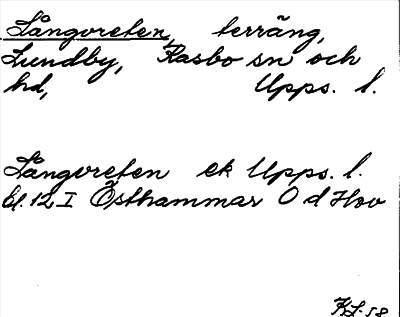 Långvreten, terräng,
Lundby, Rasbo sn och
hd, Upps. l.
Långvreten ek Upps. l.
bl. 12 I Östhammar O d Hov
KL-58